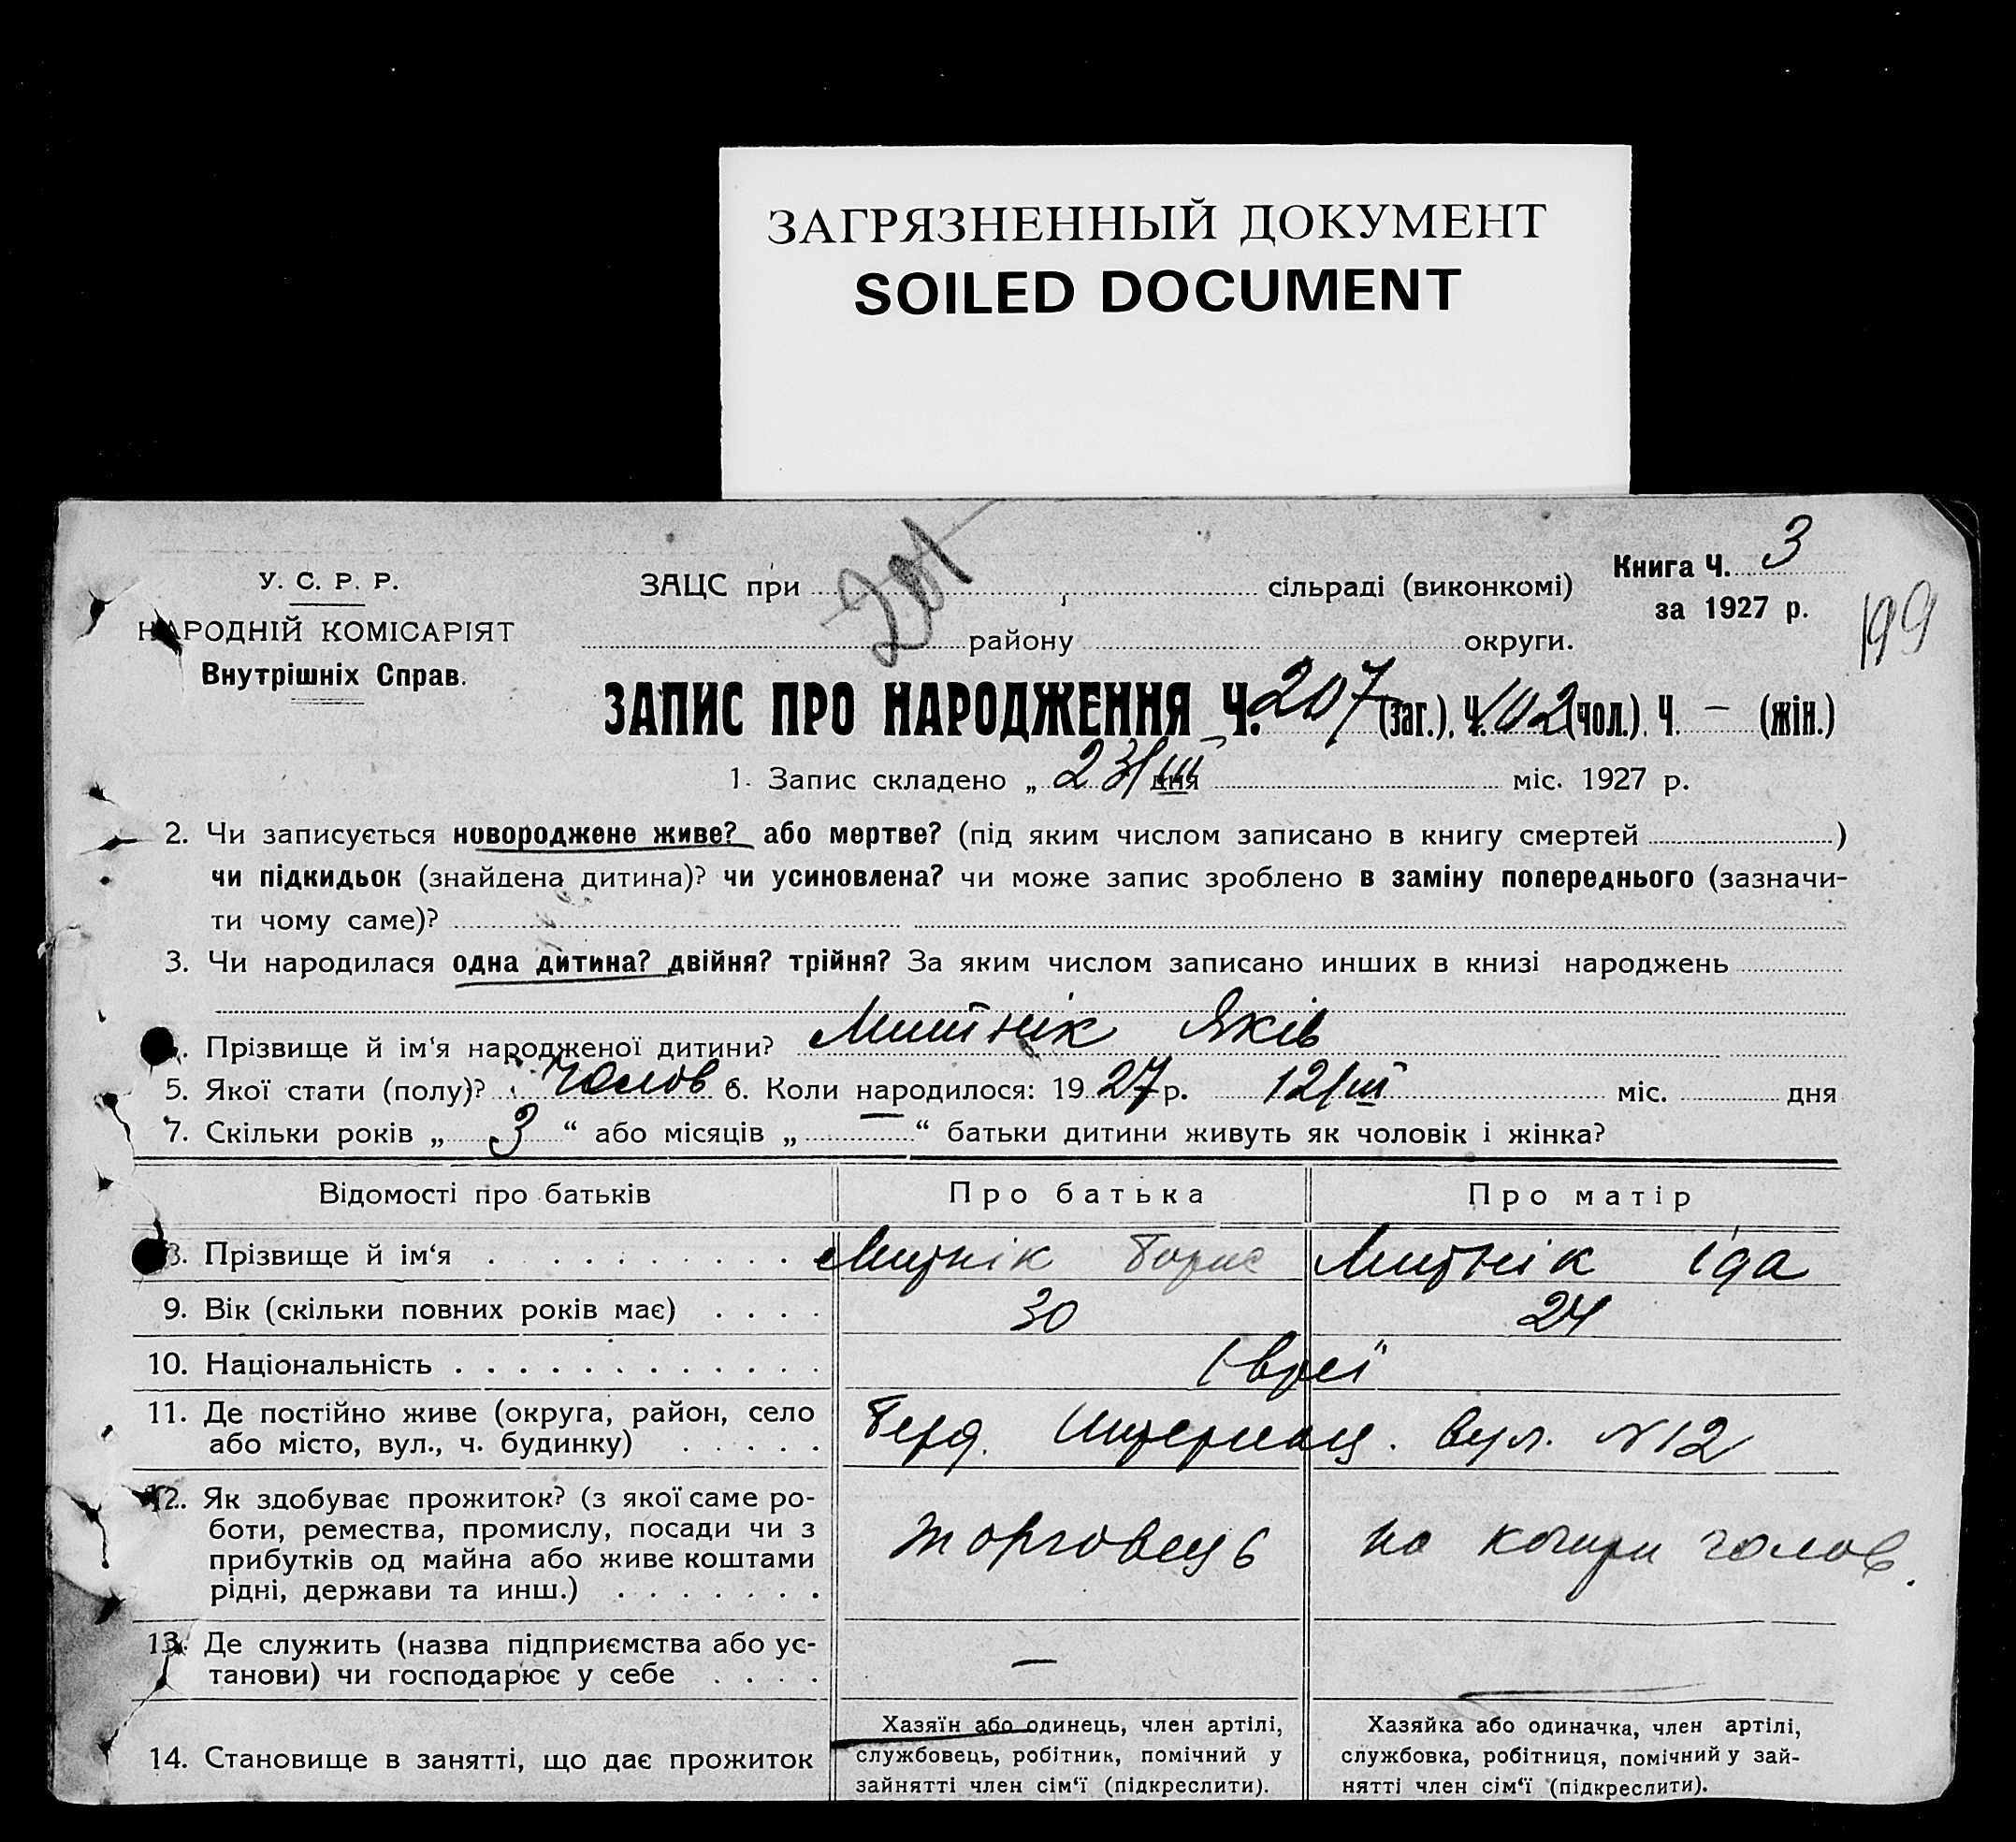 ЗАГРЯЗНЕННЫЙ ДОКУМЕНТ
SOILED DOCUMENT
Книга Ч. 3
за 1927 р.
199
У. С. Р. Р.
НАРОДНІЙ КОМІСАРІЯТ
Внутрішніх Справ.
ЗАЦС при сільраді (виконкомі)
району округи.
207
ЗАПИС ПРО НАРОДЖЕННЯ Ч. 207 (заг.), Ч. 102 (чол.). Ч. — (жін.)
1. Запис складено „ 23/III дня міс. 1927 р.
2. Чи записується новороджене живе? або мертве? (під яким числом записано в книгу смертей )
чи підкидьок (знайдена дитина)? чи усиновлена? чи може запис зроблено в заміну попереднього (зазначи-
ти чому саме)?
3. Чи народилася одна дитина? двійня? трійня? За яким числом записано инших в книзі народжень
. Прізвище й ім‘я народженої дитини? Митнік Яків
5. Якої стати (полу)? Чолов 6. Коли народилося: 1927 р. 12/III міс. дня
7. Скільки років „ 3 “ або місяців „ — “ батьки дитини живуть як чоловік і жінка?
Відомості про батьків Про батька Про матір
8. Прізвище й ім‘я Митнік Борис Митнік Іда
9. Вік (скільки повних років має) 30 24
10. Національність Євреї
11. Де постійно живе (округа, район, село
або місто, вул., ч. будинку) Берд. вул. №12
12. Як здобуває прожиток? (з якої саме ро-
боти, ремества, промислу, посади чи з
прибутків од майна або живе коштами
рідні, держави та инш.) Торговець на кошти чолов.
13. Де служить (назва підприємства або ус-
танови) чи господарює у себе —
14. Становище в занятті, що дає прожиток
Хазяїн або одинець, член артілі,
службовець, робітник, помічний у
зайнятті член сім‘ї (підкреслити).
Хазяйка або одиначка, член артілі,
службовка, робітниця, помічний у зай-
нятті член сім‘ї (підкреслити).